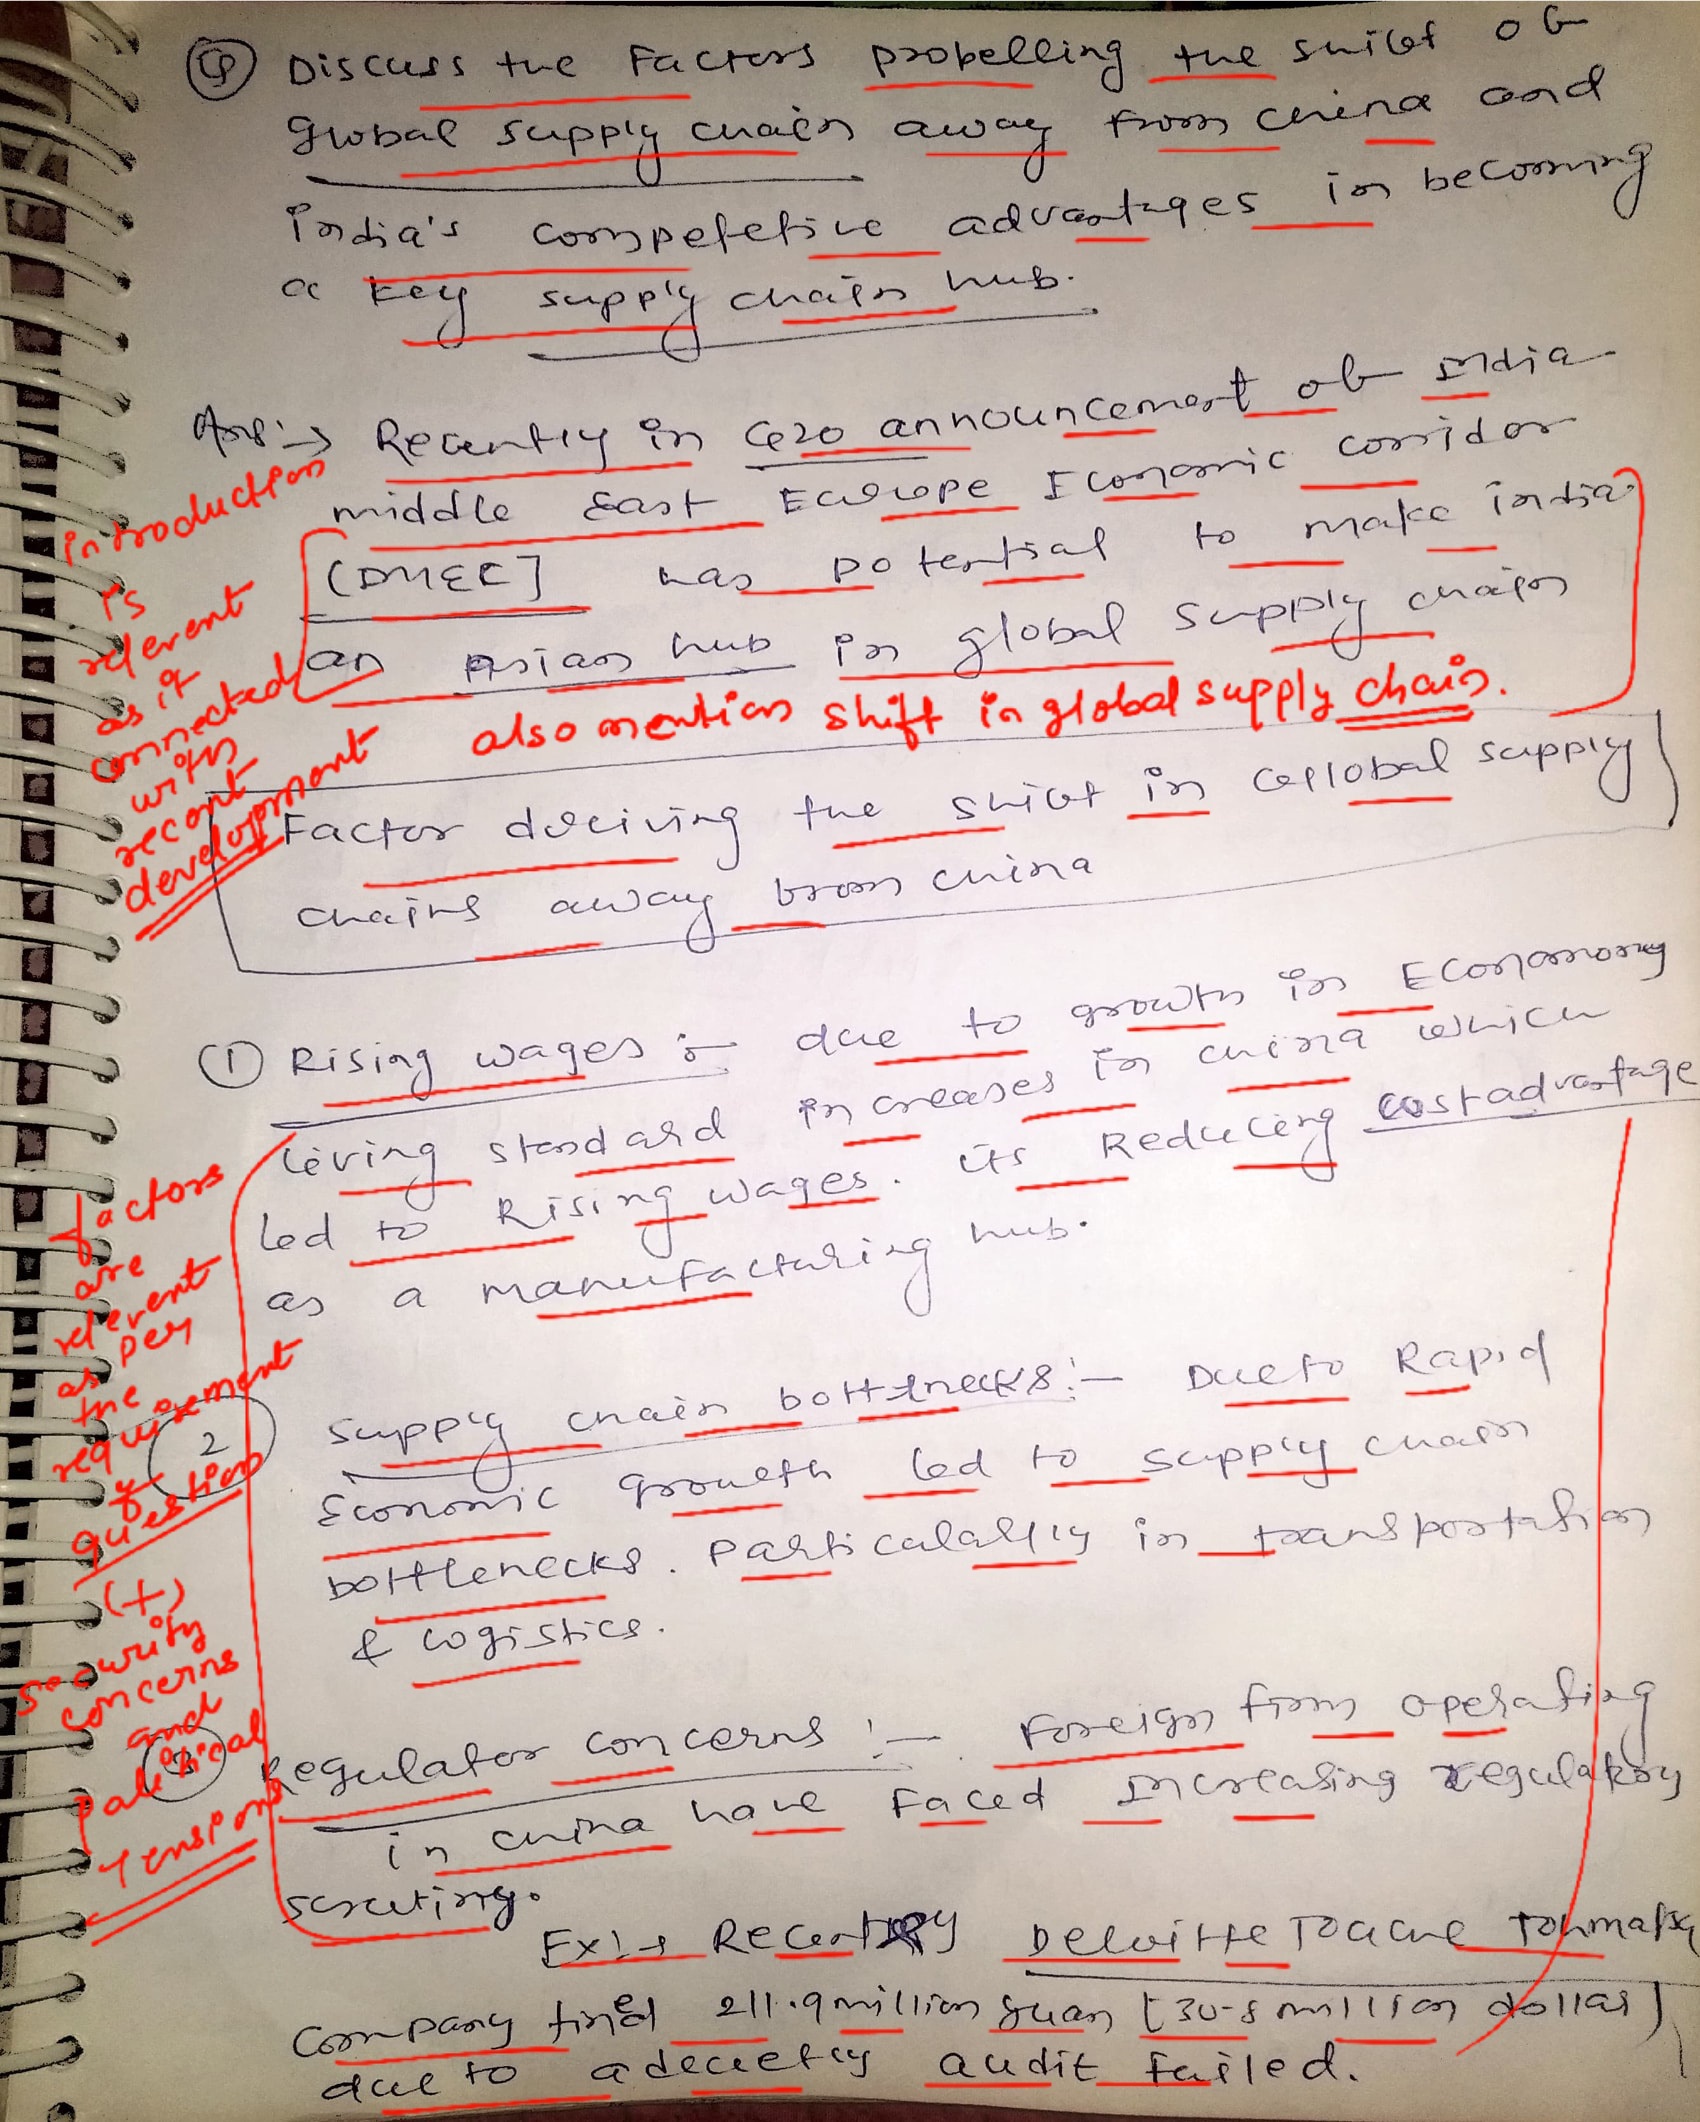 Q Discuss the Factors propelling the shift of
global supply chain away from china and
india's competetive advantages in becoming
a key supply chain hub.
Ans:→ Recently in G20 announcement of India
middle East Europe Economic corridor
[IMEC] has potential to make india
an Asian hub in global supply chain
also mention shift in global supply chain.
introduction
is
relevent
as it
connected
with
recent
development
Factor deriving the shift in Gllobal supply
chains away from china
① Rising wages :- due to growth in Economomy
living standard increases in china which
led to Rising wages. its Reducing cost advantage
as a manufacturing hub.
factors
are
relevent
as per
the
requirement
of
question
(+)
security
concerns
and
political
Tensions
2 supply chain bottlnecks:- Due to Rapid
Economic growth led to supply chain
bottlenecks. Particalarly in transportation
& logistics.
3 Regulator concerns :- Foreign firm operating
in china have faced Increasing regulatory
scrutiny.
Ex:→ Recently Deloitte Touche Tohmatsu
company fined 211.9 million yuan [30.8 million dollar]
due to adecuetly audit failed.